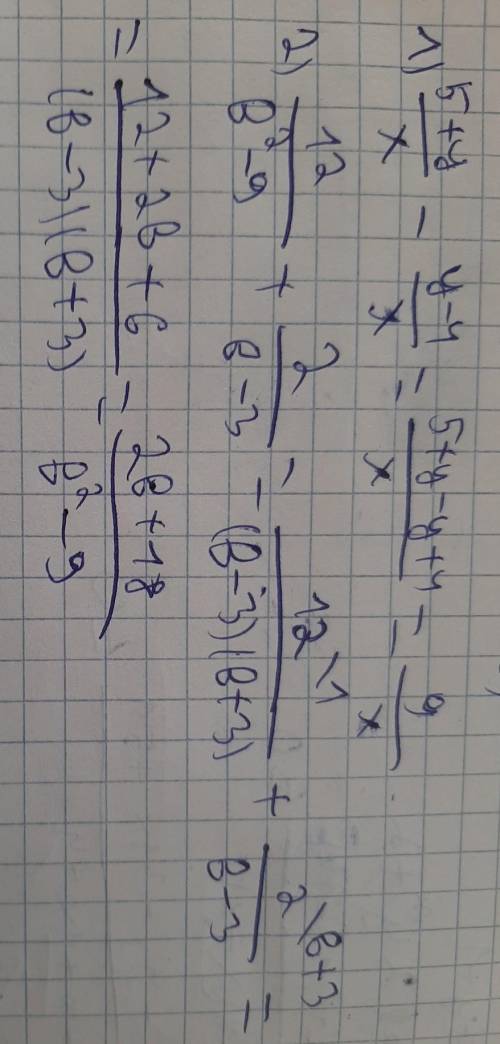 1) (5+y)/x − (y−4)/x = (5+y−y+4)/x = 9/x
2) 12/(b²−9) + 2/(b−3) = 12\1/((b−3)(b+3)) + 2\b+3/(b−3) =
= (12+2b+6)/((b−3)(b+3)) = (2b+18)/(b²−9)